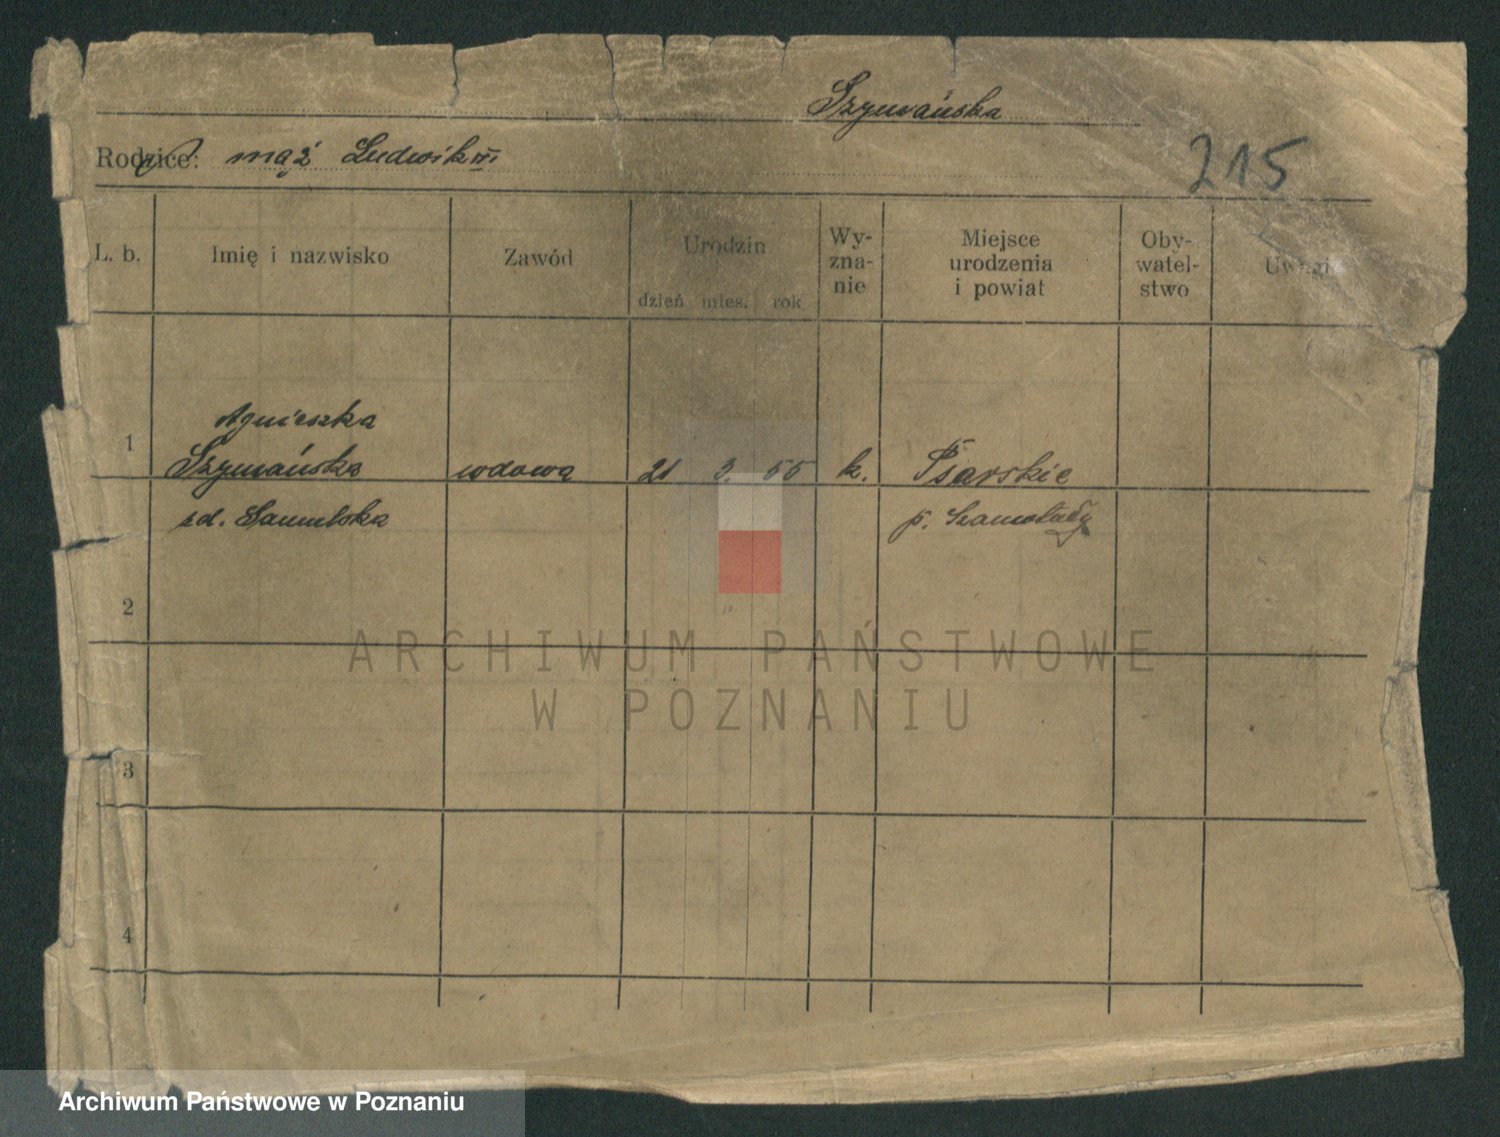 Szymańska
Rodzice: mąż Ludwik
215
L. b. Imię i nazwisko Zawód Urodzin dzień mies. rok Wy-zna-nie Miejsce urodzenia i powiat Oby-watel-stwo Uwagi
Agnieszka
1 Szymańska wdowa 21 3. 55 k. Psarskie
p. Szamotuły
2
3
4
ARCHIWUM PAŃSTWOWE
W POZNANIU
Archiwum Państwowe w Poznaniu